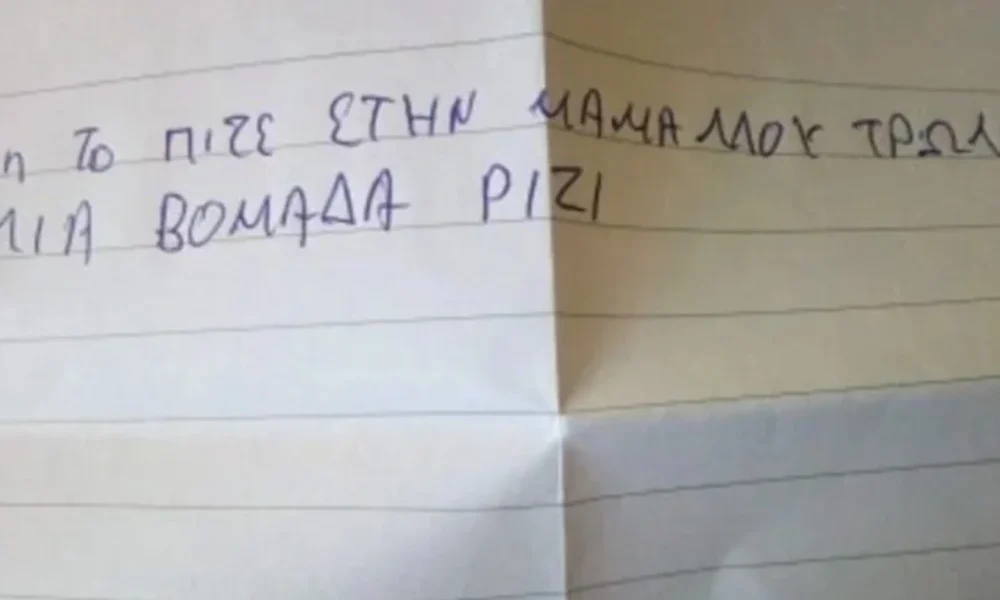 η ΤΟ ΠΙΤΕ ΣΤΗΝ ΜΑΜΑ ΜΟΥ ΤΡΩΩ
ΜΙΑ ΒΟΜΑΔΑ ΡΙΖΙ